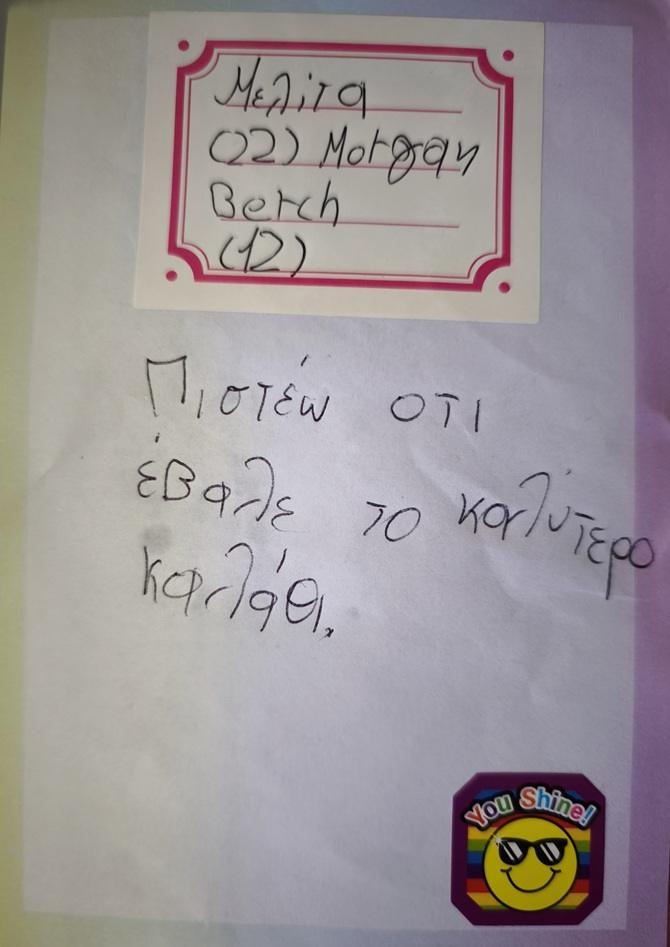 Μελίτα
(22) Morgan
Berch
(12)
Πιστέω οτι
έβαλε το καλύτερο
καλάθι.
You Shine!